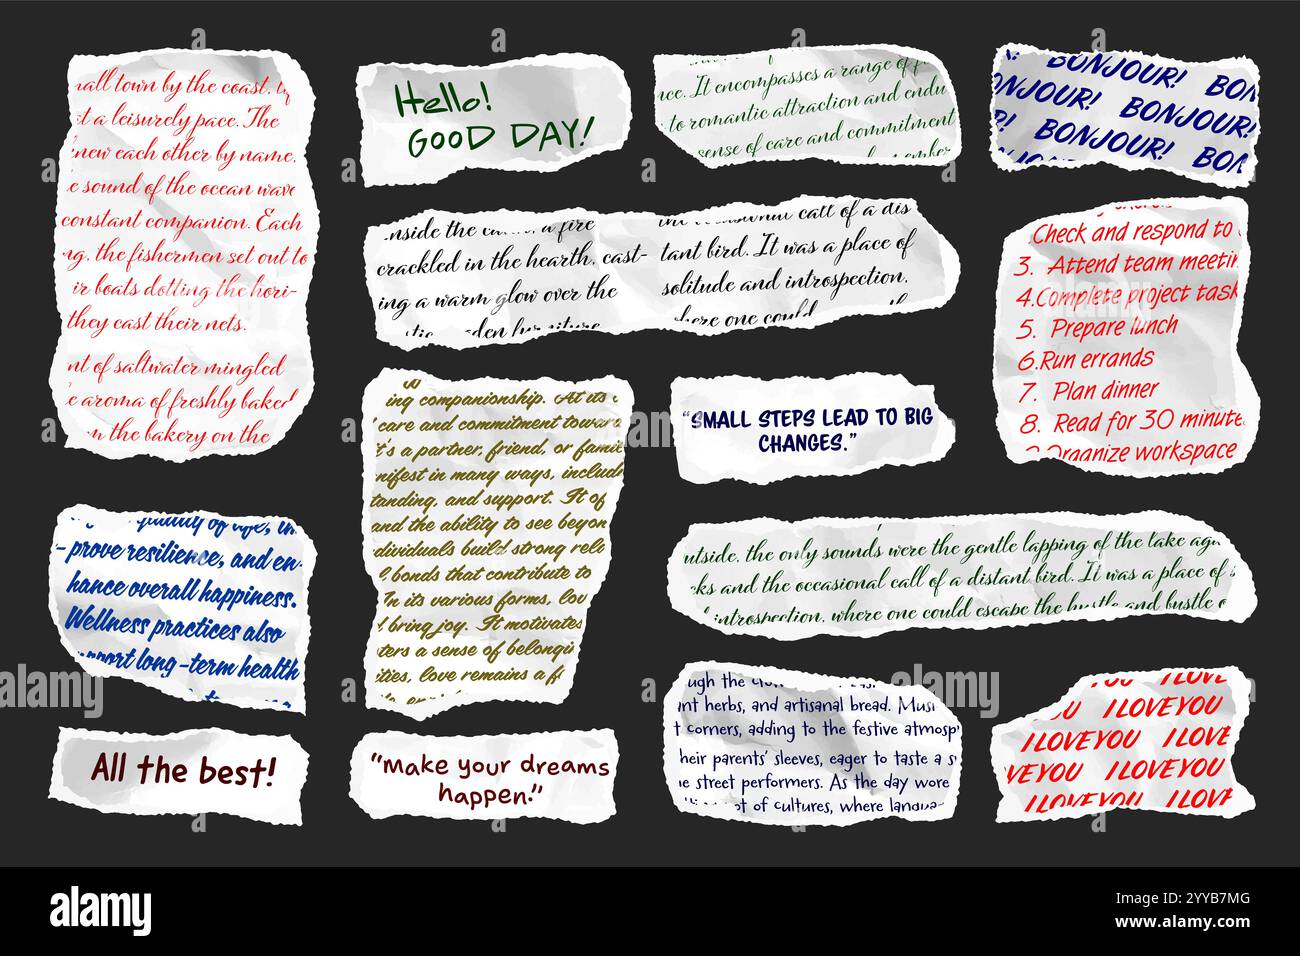 mall town by the coast,
at a leisurely pace. The
knew each other by name,
e sound of the ocean wave
constant companion. Each
ng, the fishermen set out to
ir boats dotting the hori-
they cast their nets.
nt of saltwater mingled
e aroma of freshly baked
m the bakery on the
Hello!
GOOD DAY!
nce. It encompasses a range of
to romantic attraction and endu
sense of care and commitment
BONJOUR! BON
ONJOUR! BONJOUR!
R! BONJOUR! BON
nside the a fire
crackled in the hearth, cast-
ing a warm glow over the
the occasional call of a dis
tant bird. It was a place of
solitude and introspection,
where one could
Check and respond to
3. Attend team meetin
4.Complete project task
5. Prepare lunch
6.Run errands
7. Plan dinner
8. Read for 30 minute
Organize workspace
ing companionship. At its
care and commitment toward
it's a partner, friend, or famil
nifest in many ways, includ
tanding, and support. It of
and the ability to see beyon
dividuals build strong rela
bonds that contribute to
In its various forms, lov
bring joy. It motivates
ters a sense of belongi
ities, love remains a f
"SMALL STEPS LEAD TO BIG
CHANGES."
quality of life, im
- prove resilience, and en-
hance overall happiness.
Wellness practices also
pport long-term health
utside, the only sounds were the gentle lapping of the lake aga
cks and the occasional call of a distant bird. It was a place of s
introspection, where one could escape the hustle and bustle o
ugh the
nt herbs, and artisanal bread. Musi
t corners, adding to the festive atmosp
heir parents' sleeves, eager to taste a s
e street performers. As the day wore
ot of cultures, where langua-
YOU I LOVE
OU I LOVE YOU
I LOVE YOU I LOVE
VE YOU I LOVE YOU
I LOVE YOU I LOVE
All the best!
"Make your dreams
happen."
alamy
Image ID: 2YYB7MG
www.alamy.com